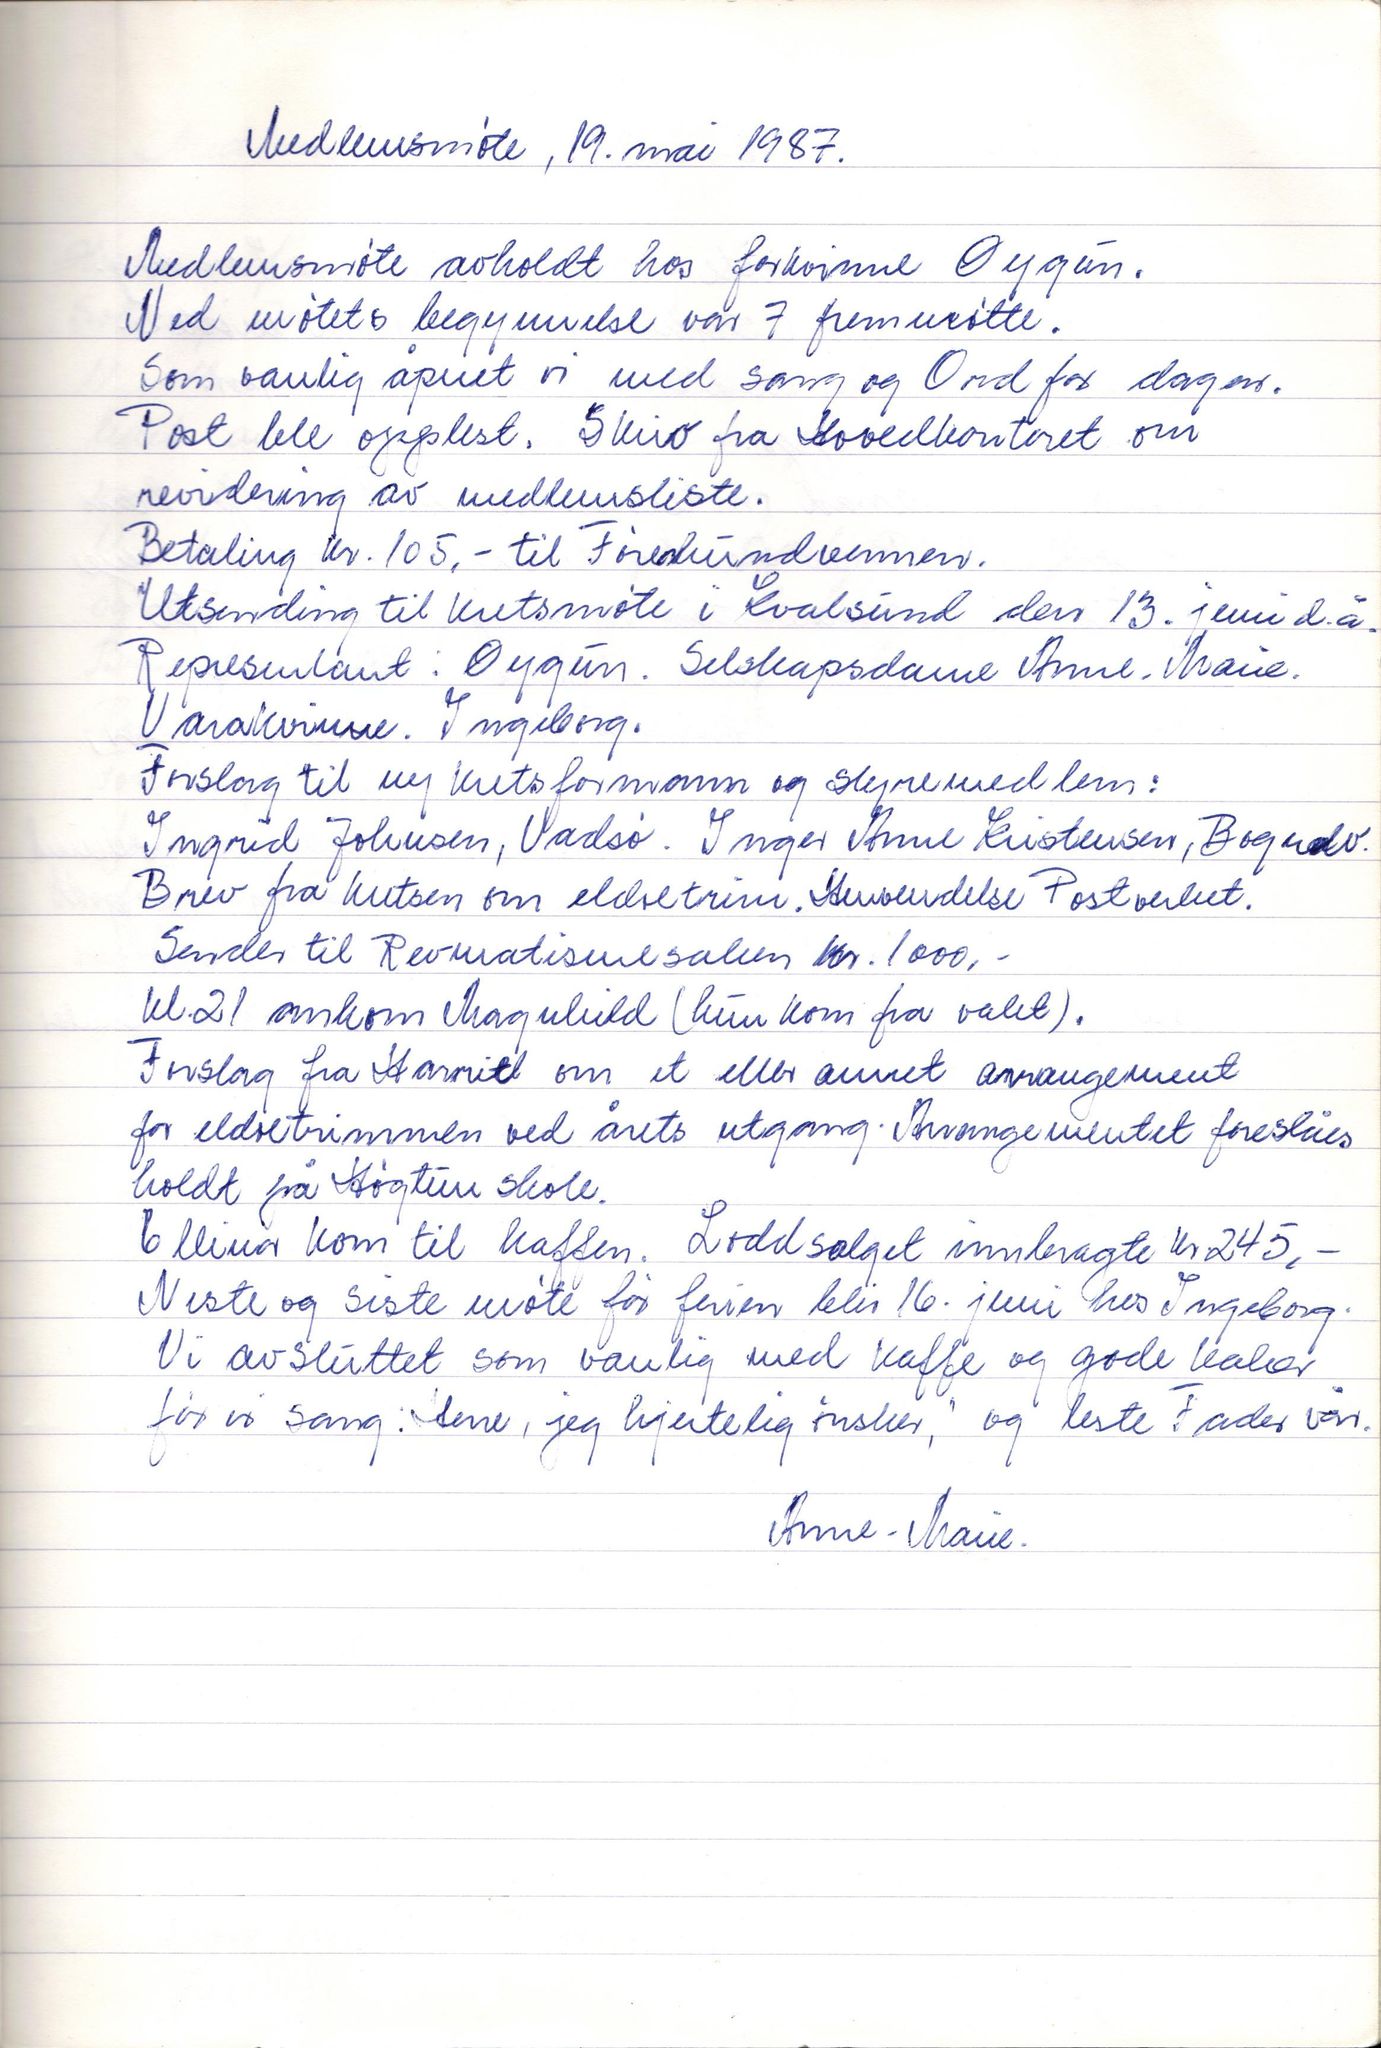 Medlemsmöte, 19. mai 1987.
Medlemsmöte avholdt hos forkvinne Oygun.
Ved mötets begynnelse var 7 fremmötte.
Som vanlig åpnet vi med sang og Ord for dagen.
Post ble opplest. Skriv fra Hovedkontoret om
revidering av medlemsliste.
Betaling kr. 105,- til Förerhundvennen.
Utsending til kretsmöte i Kvalsund den 13. juni d.å.
Representant: Oygun. Selskapsdame Anne-Marie.
Varakvinne. Ingeborg.
Forslag til ny kretsformann og styremedlem:
Ingrid Johnsen, Vadsö. Inger Anne Kristensen, Bognelv.
Brev fra kretsen om eldretrim. Henvendelse Postverket.
Sender til Revmatismesaken kr. 1000,-
Kl. 21 ankom Magnhild (hun kom fra valet).
Forslag fra Harriet om et eller annet arrangement
for eldretrimmen ved årets utgang. Arrangementet foreslåes
holdt på Högtun skole.
Ellinor kom til kaffen. Loddsalget innbragte kr 245,-
Neste og siste möte för ferien blir 16. juni hos Ingeborg.
Vi avsluttet som vanlig med kaffe og gode kaker
för vi sang: Herre, jeg hjertelig önsker," og leste Fader vår.
Anne-Marie.